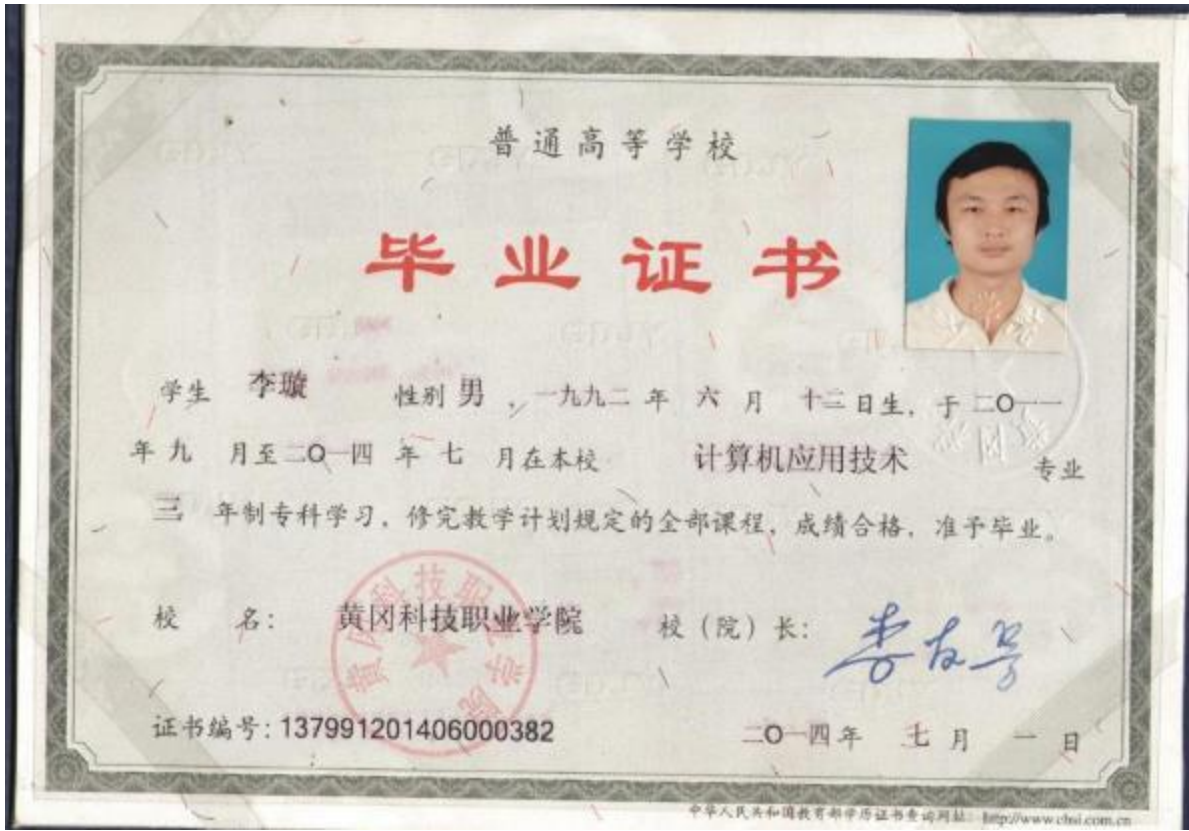 普通高等学校
毕业证书
学生 李璇 性别 男 ，一九九二 年 六 月 十二 日生，于 二O一一
年 九 月至 二O一四 年 七 月在本校 计算机应用技术 专业
三 年制专科学习，修完教学计划规定的全部课程，成绩合格，准予毕业。
校 名： 黄冈科技职业学院 校（院）长：
黄冈科技职业学院
证书编号：137991201406000382 二O一四 年 七 月 一 日
中华人民共和国教育部学历证书查询网站： http://www.chsi.com.cn